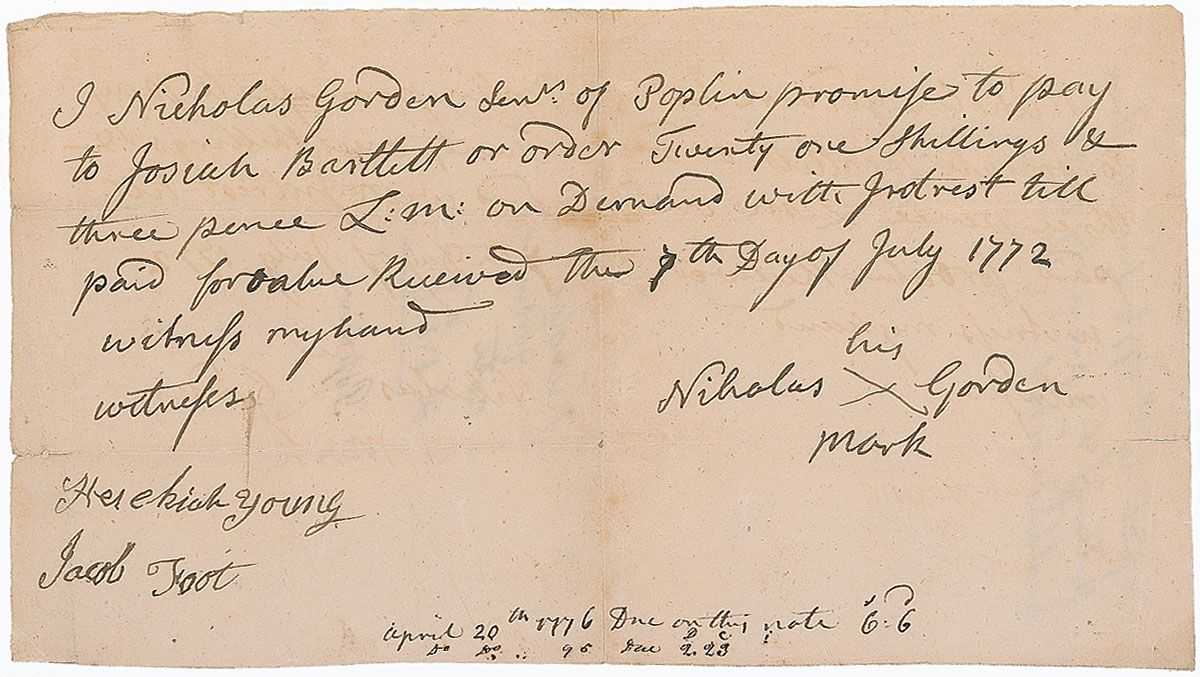 I Nicholas Gorden Senr. of Poplin promise to pay
to Josiah Bartlett or order Twenty one Shillings &
three pence L:M: on Demand with Intrest till
paid for value Received the 7th Day of July 1772
witness my hand
his
Niholas X Gorden
mark
witness
Hezekiah Young
Jacob Foot
April 20th 1776 Due on this note £6:6
Do Do 96 Due 2.23